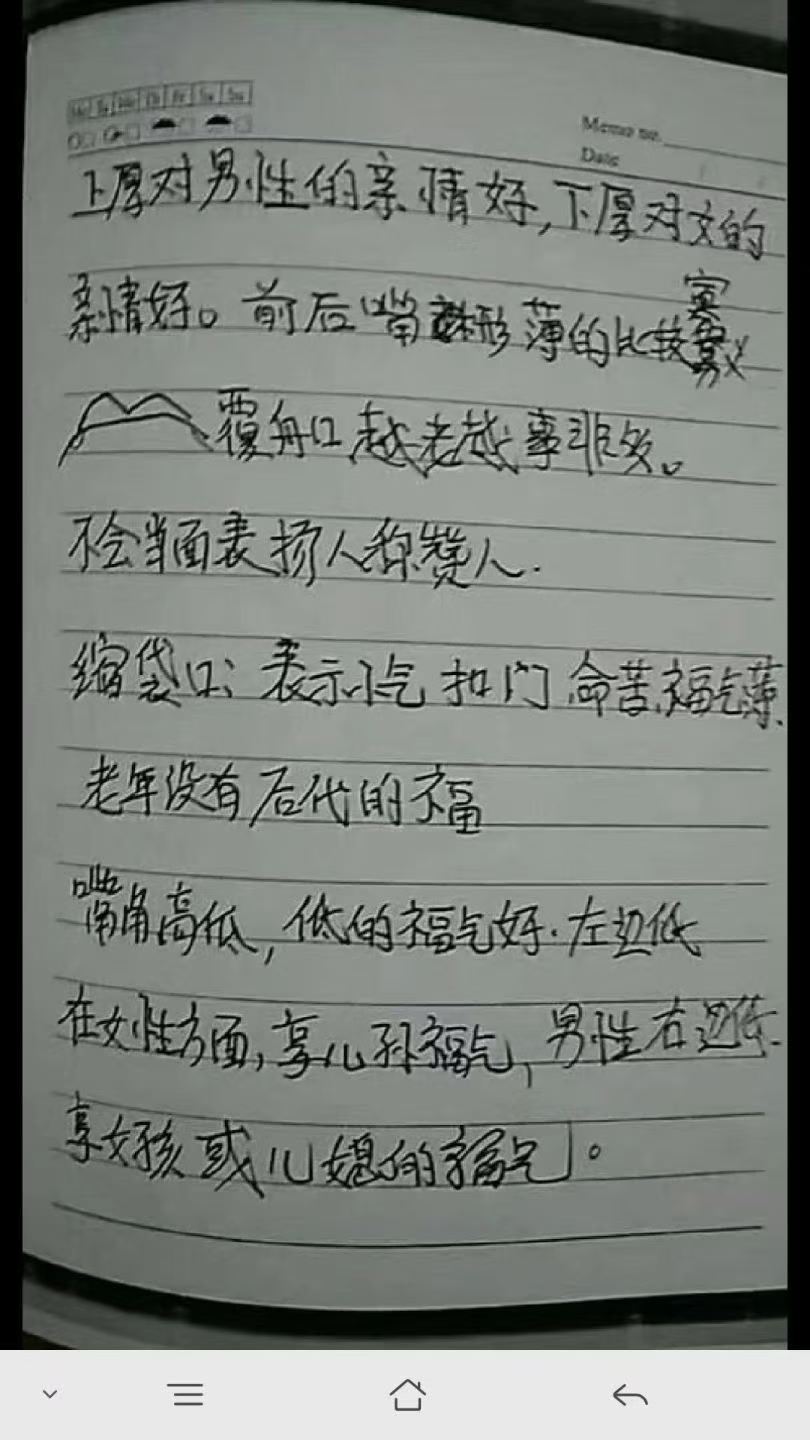 Mo Tu We Th Fr Sa Su
Memo no.
Date
上厚对男性的亲情好,下厚对女的
亲情好。前后嘴 形薄的比较寡义
覆舟口越老越事非多。
不会当面表扬人称赞人.
缩袋口: 表示小气 扣门 命苦.福气薄.
老年没有后代的福
嘴角高低,低的福气好.左边低
在女性方面,享儿孙福气,男性右边低.
享女孩或儿媳的福气。